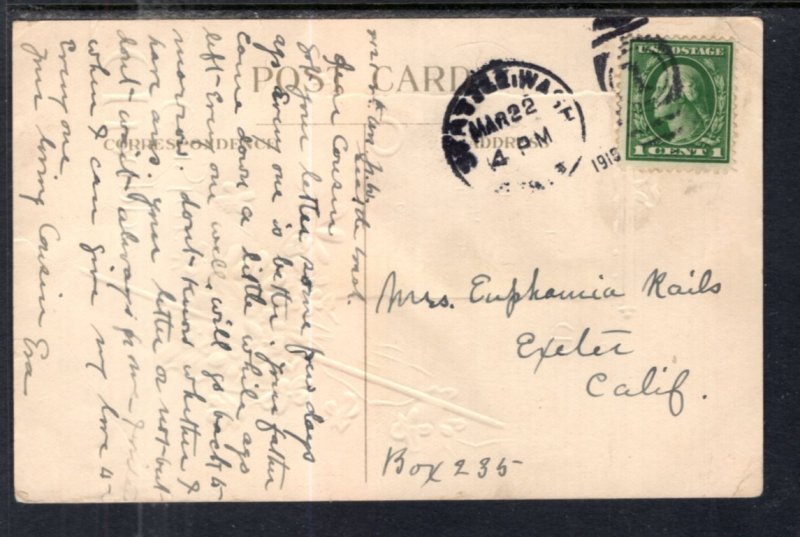 POST CARD
CORRESPONDENCE
ADDRESS
SEATTLE, WASH
MAR 22
4 PM
191
U.S. POSTAGE
1 CENT 1
Seattle Wash.
Dear Cousin
Got your letter some few days
ago Every one is better. Your father
came down a little while ago
left Every one well, will go back to
morrow. dont know whether I
have ans. your letter or not but
dont wait always for me
when I can give my love to
Every one.
Your loving Cousin Eva
Mrs. Euphamia Rails
Exeter
Calif.
Box 235